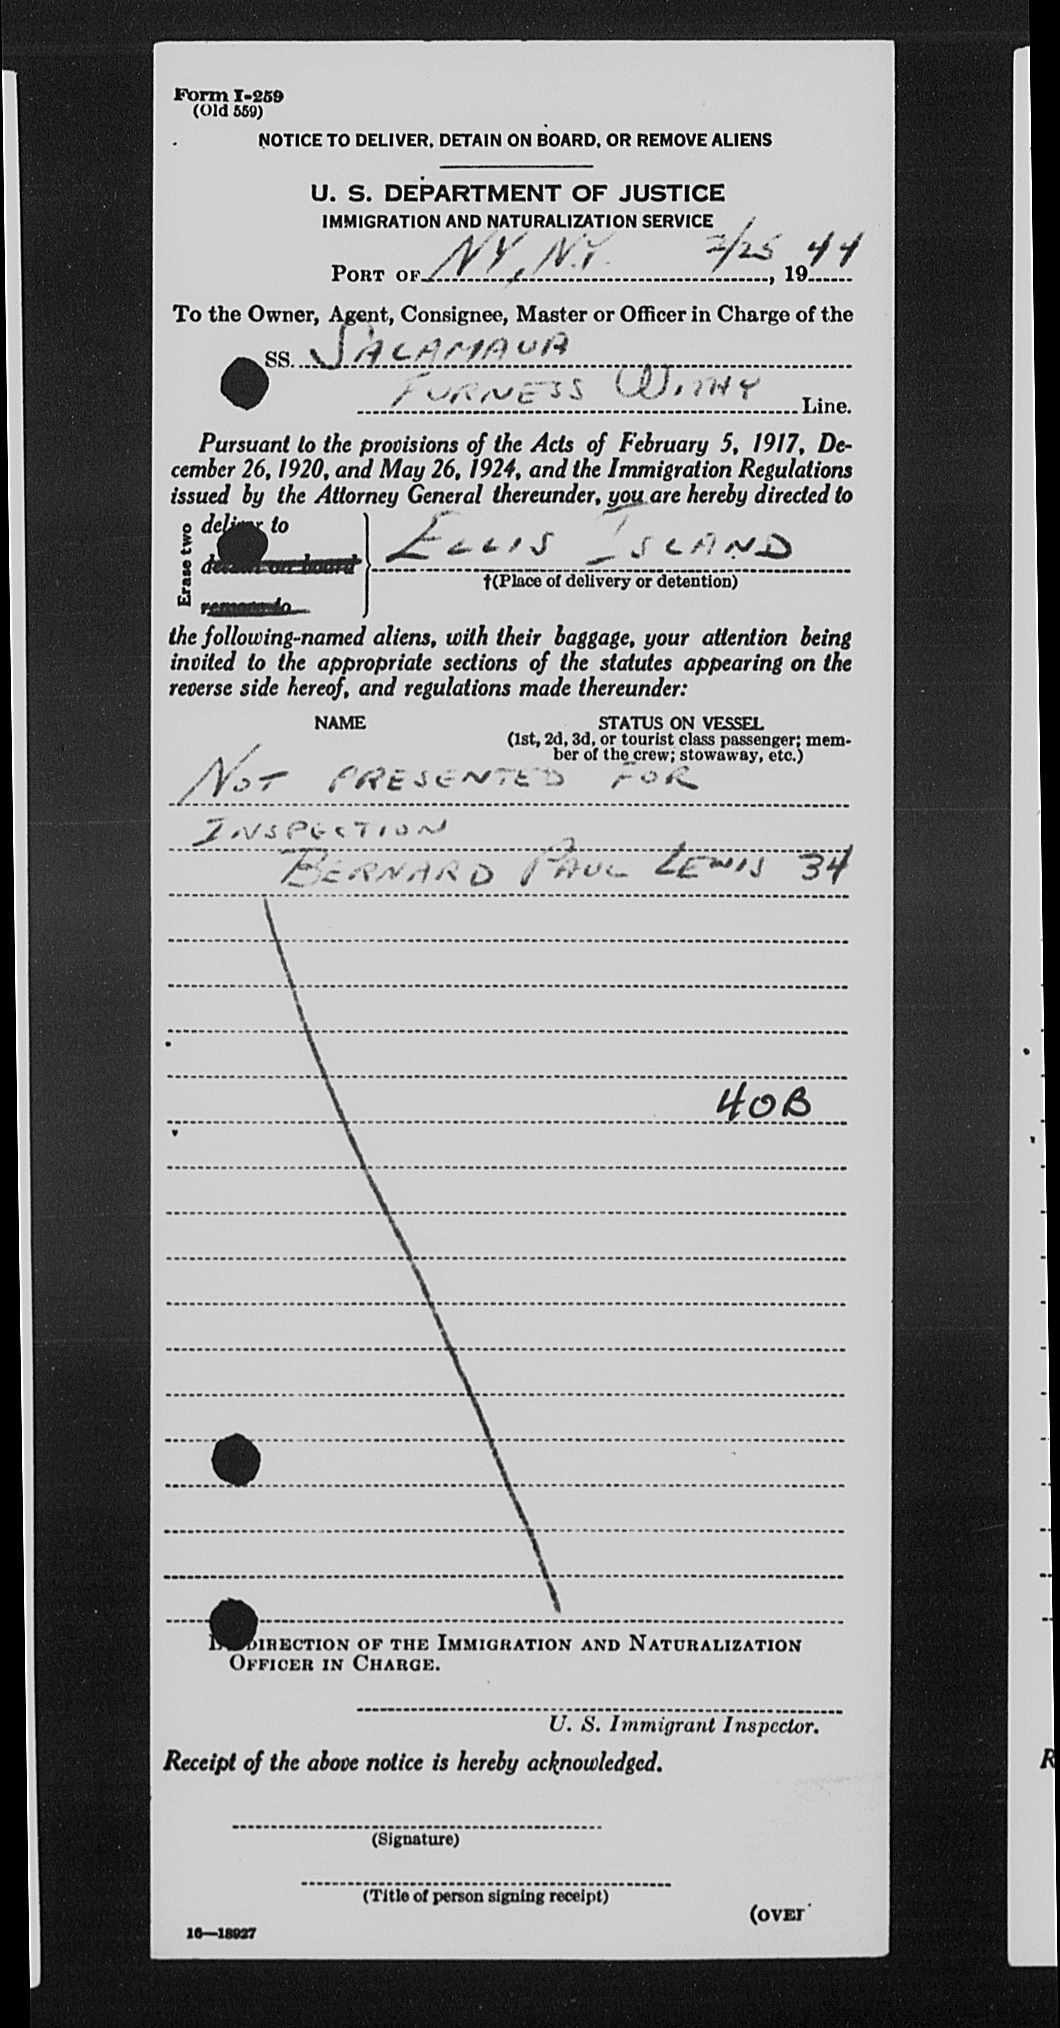 Form I-259
(Old 559)
NOTICE TO DELIVER, DETAIN ON BOARD, OR REMOVE ALIENS
U. S. DEPARTMENT OF JUSTICE
IMMIGRATION AND NATURALIZATION SERVICE
PORT OF NY, N.Y. 2/25, 1944
To the Owner, Agent, Consignee, Master or Officer in Charge of the
SS. SALAMAUA
FURNESS WITHY Line.
Pursuant to the provisions of the Acts of February 5, 1917, De-
cember 26, 1920, and May 26, 1924, and the Immigration Regulations
issued by the Attorney General thereunder, you are hereby directed to
Erase two
deliver to
detain on board
remove to
ELLIS ISLAND
†(Place of delivery or detention)
the following-named aliens, with their baggage, your attention being
invited to the appropriate sections of the statutes appearing on the
reverse side hereof, and regulations made thereunder:
NAME STATUS ON VESSEL
(1st, 2d, 3d, or tourist class passenger; mem-
ber of the crew; stowaway, etc.)
NOT PRESENTED FOR
INSPECTION
BERNARD PAUL LEWIS 34
40B
DIRECTION OF THE IMMIGRATION AND NATURALIZATION
OFFICER IN CHARGE.
U. S. Immigrant Inspector.
Receipt of the above notice is hereby acknowledged.
(Signature)
(Title of person signing receipt)
(OVER
16—18927